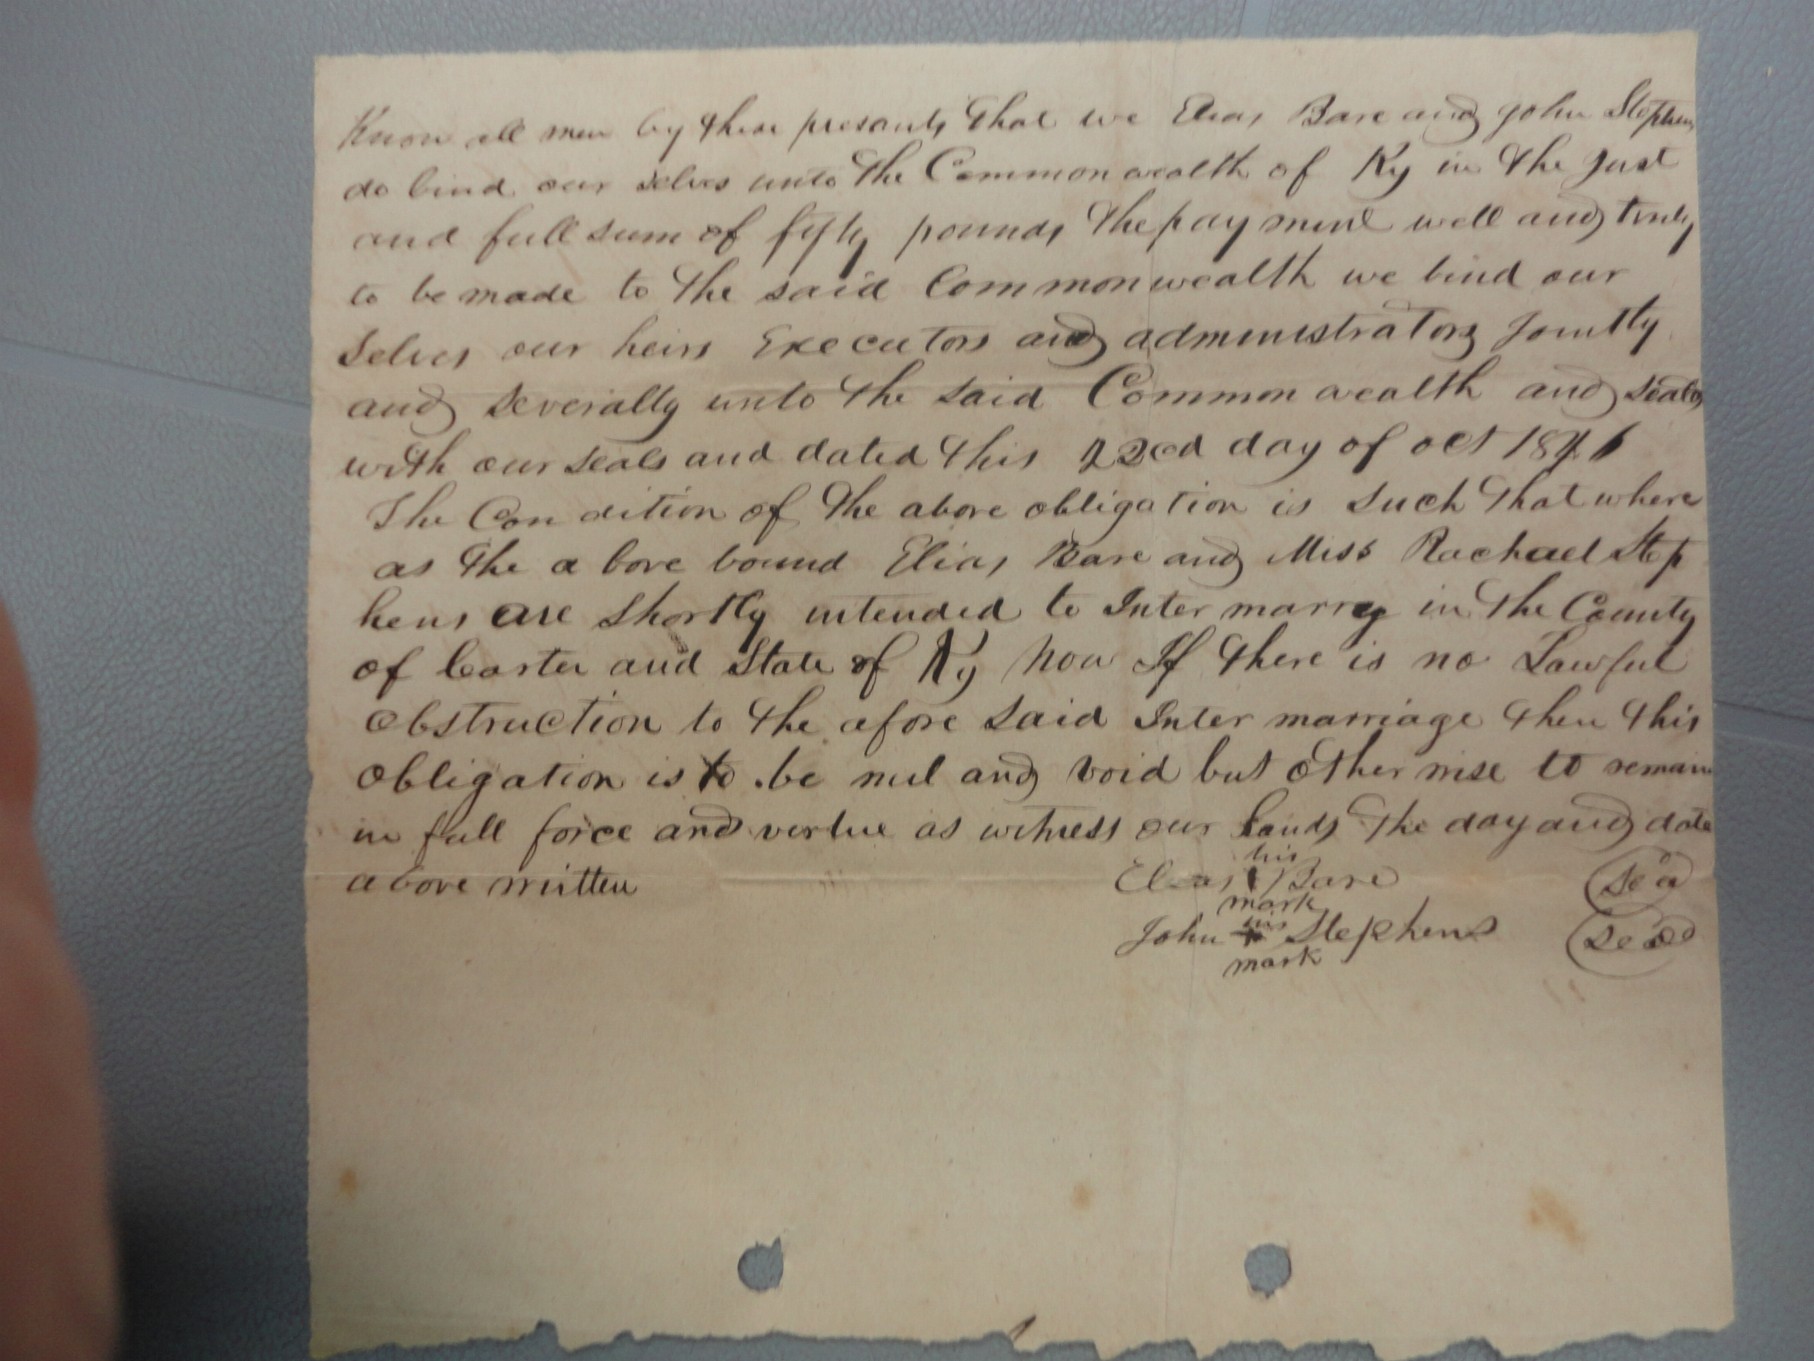 Know all men by these presants that we Elias Bare and John Stephens
do bind our selves unto the Commonwealth of Ky in the Just
and full sum of fifty pounds the payment well and truly
to be made to the said Commonwealth we bind our
selves our heirs Executors and administrators Jointly
and severally unto the said Common wealth and seald
with our seals and dated this 22ed day of oct
The Condition of the above obligation is such that where
as the above bound Elias Bare and Miss Rachael Step
hens are shortly intended to Inter marry in the County
of Carter and State of Ky Now If there is no Lawful
obstruction to the afore said Inter marriage then this
obligation is to be nul and void but otherwise to remain
in full force and vertue as witness our hands the day and date
above written
his
Elias Bare (Sea
mark
his
John + Stephens (Seal)
mark